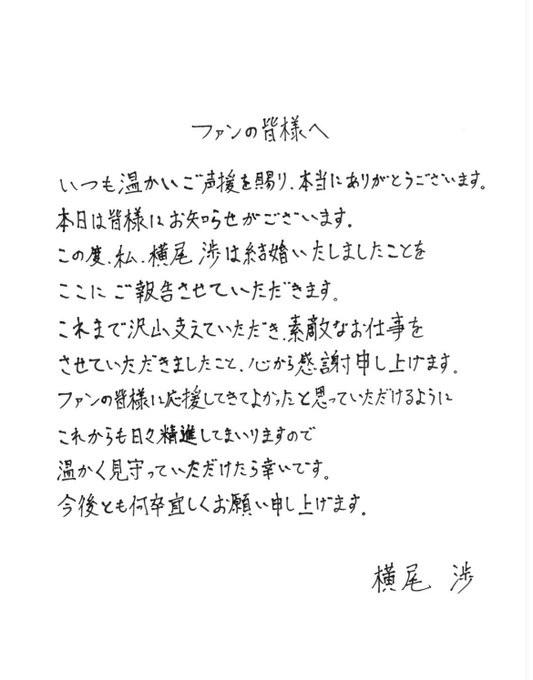 ファンの皆様へ
いつも温かいご声援を賜り、本当にありがとうございます。
本日は皆様にお知らせがございます。
この度、私、横尾 渉は結婚いたしましたことを
ここにご報告させていただきます。
これまで沢山支えていただき、素敵なお仕事を
させていただきましたこと、心から感謝申し上げます。
ファンの皆様に応援してきてよかったと思っていただけるように
これからも日々精進してまいりますので
温かく見守っていただけたら幸いです。
今後とも何卒宜しくお願い申し上げます。
横尾 渉